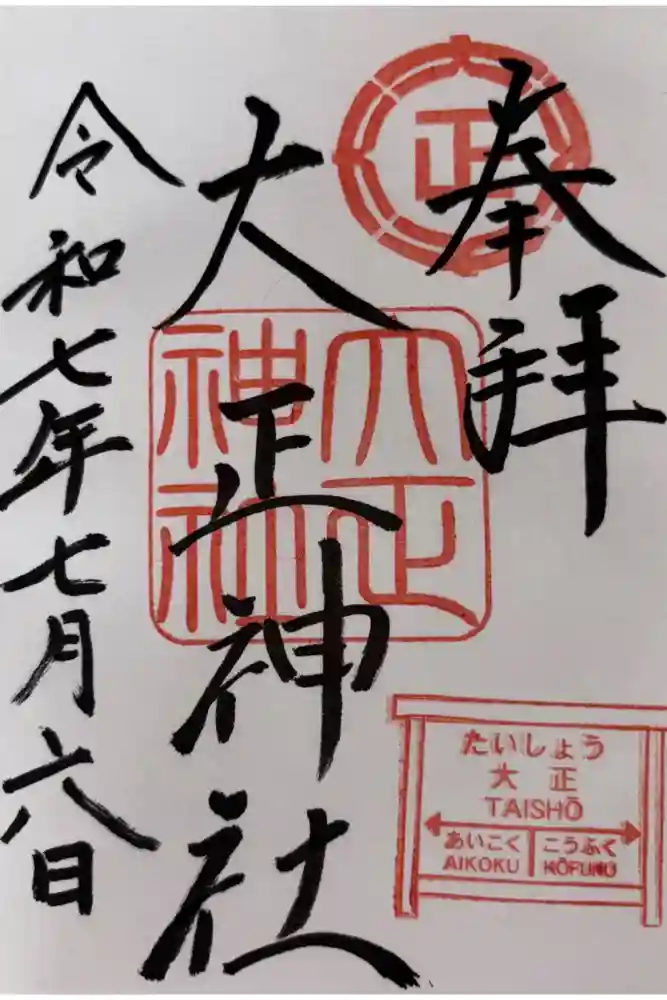 奉拝
正
大正神社
大正
神社
令和七年七月六日
たいしょう
大正
TAISHŌ
あいこく こうふく
AIKOKU KŌFUKU